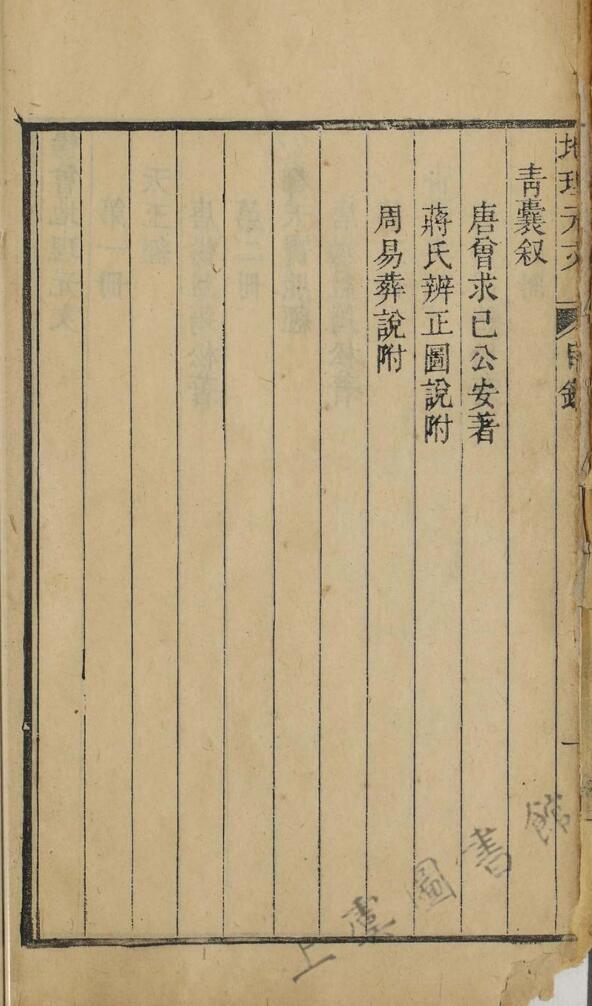 地理元文
目錄
一
青囊叙
唐曾求已公安著
蔣氏辨正圖說附
周易葬說附
上虞圖書館